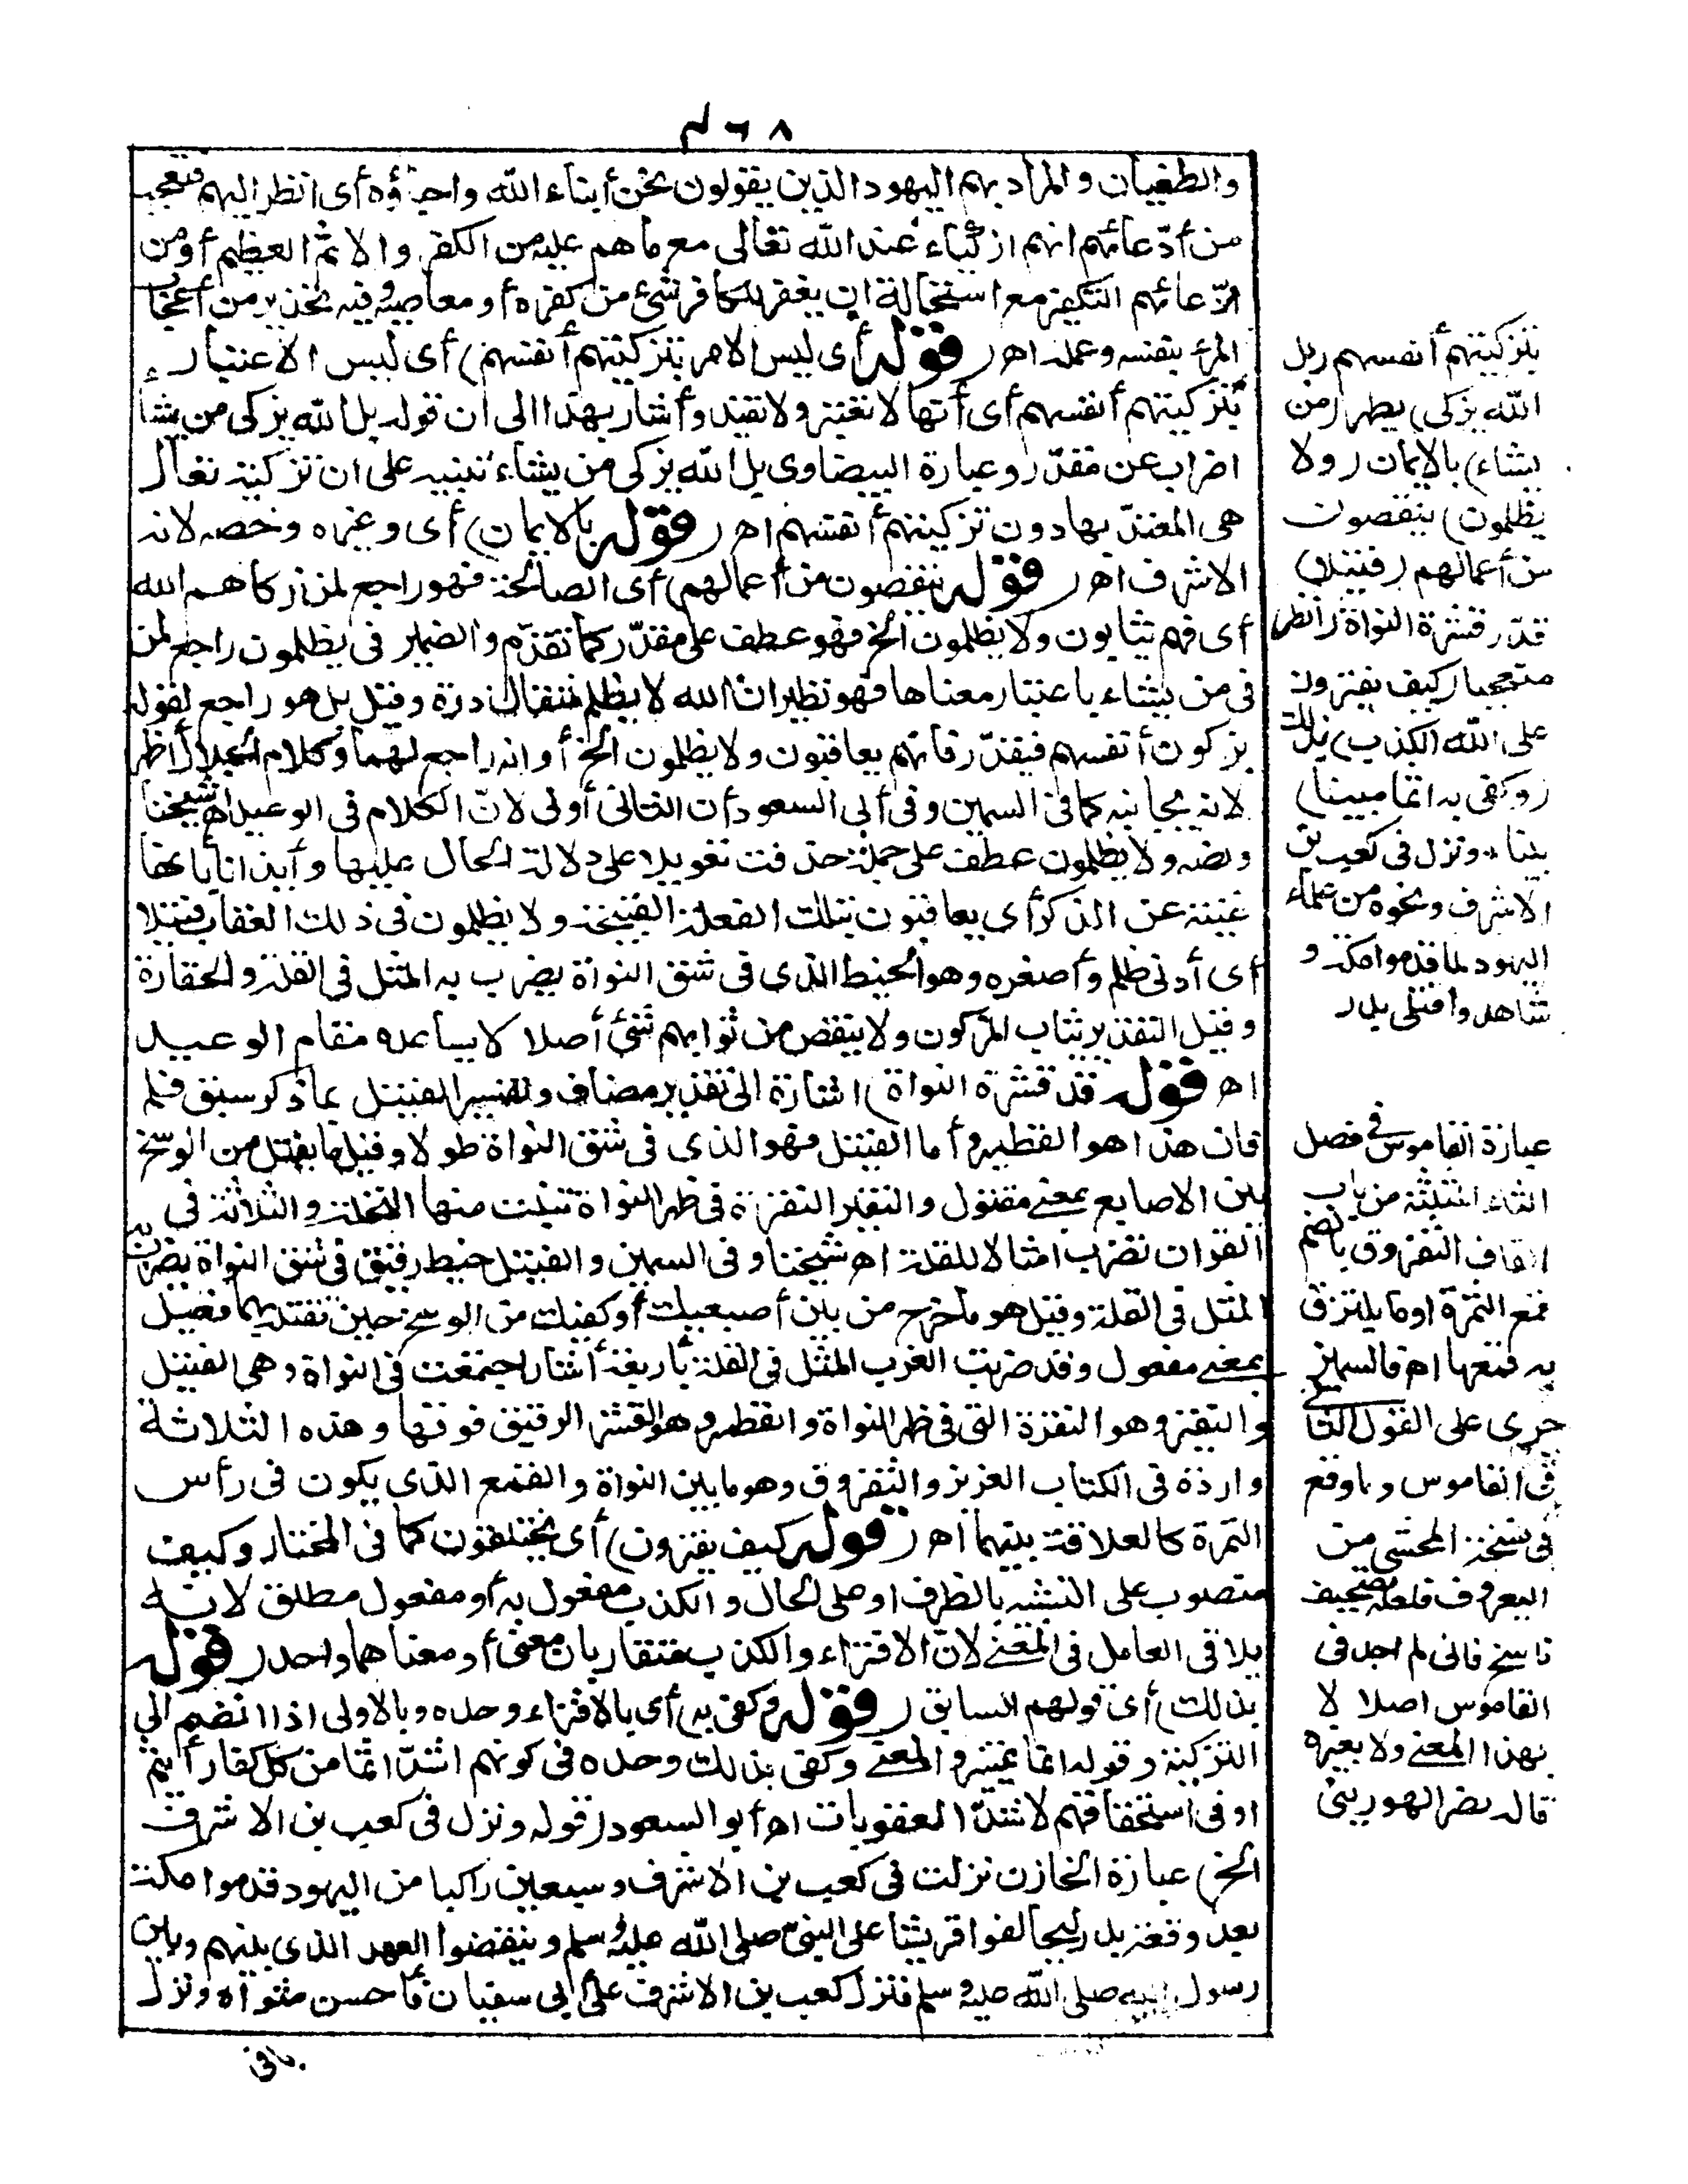 ٤٦٨
والطغيان والمراد بهم اليهود الذين يقولون نحن أبناء الله واحباؤه أى انظر اليهم فتعجب
من أدّعائهم انهم ازكياء عند الله تعالى مع ما هم عليه من الكفر والاثم العظيم أو من
ادّعائهم التكفير مع استحالة ان يغفر للكافر شئ من كفره أو معاصيه وفيه تحذير من أعجاب
المرء بنفسه وعمله اهـ (قوله أى ليس الامر بتزكيتهم أنفسهم) أى ليس الاعتبار
بتزكيتهم أنفسهم أى أنها لا تغنيه ولا تفيد وأشار بهذا الى ان قوله بل الله يزكى من يشاء
اضراب عن مقدّر وعبارة البيضاوى بل الله يزكى من يشاء تنبيه على ان تزكيته تعالى
هى المعتدّ بها دون تزكيتهم أنفسهم اهـ (قوله بالايمان) أى وغيره وخصه لانه
الاشرف اهـ (قوله ينقصون من أعمالهم) أى الصالحة فهو راجع لمن زكاهم الله
أى فهم يثابون ولا يظلمون الخ فهو عطف على مقدّر كما تقدّم والضمير فى يظلمون راجع لمن
فى من يشاء باعتبار معناها فهو نظير ان الله لا يظلم مثقال ذرة وقيل بل هو راجع لقوله
يزكون أنفسهم فيقدّر فانهم يعاقبون ولا يظلمون الخ أو انه راجع لهما وكلام الجلال أظهر
لانه بجانبه كما فى السمين وفى أبى السعود أن الثانى أولى لانّ الكلام فى الوعيد اهـ شيخنا
ونصه ولا يظلمون عطف على جملة حذفت تعويلا على دلالة الحال عليها وأيذانا بأنها
غنية عن الذكر أى يعاقبون بتلك الفعلة القبيحة ولا يظلمون فى ذلك العقاب فتيلا
أى أدنى ظلم وأصغره وهو الخيط الذى فى شق النواة يضرب به المثل فى القلة والحقارة
وقيل التقدير يثاب المزكون ولا ينقص من ثوابهم شئ أصلا لا يساعده مقام الوعيد
اهـ (قوله قدر قشرة النواة) اشارة الى تقدير مضاف وتفسير الفتيل بما ذكر سبق قلم
فان هذا هو القطمير وأما الفتيل فهو الذى فى شق النواة طولا وقيل ما يفتل من الوسخ
بين الاصابع بمعنى مفتول والنقير النقرة فى ظهر النواة تنبت منها النخلة والثلاثة فى
القرآن تضرب امثالا للقلة اهـ شيخنا وفى السمين والفتيل خيط رقيق فى شق النواة يضرب به
المثل فى القلة وقيل هو ما خرج من بين أصبعيك أو كفيك من الوسخ حين تفتلهما فعيل
بمعنى مفعول وقد ضربت العرب المثل فى القلة بأربعة أشياء اجتمعت فى النواة وهى الفتيل
والنقير وهو النقرة التى فى ظهر النواة والقطمير وهو القشر الرقيق فوقها وهذه الثلاثة
واردة فى الكتاب العزيز والثفروق وهو ما بين النواة والقمع الذى يكون فى رأس
التمرة كالعلاقة بينهما اهـ (قوله كيف يفترون) أى يختلقون كما فى المختار وكيف
منصوب على التشبه بالظرف او على الحال والكذب مفعول به أو مفعول مطلق لانه
يلاقى العامل فى المعنى لانّ الافتراء والكذب متقاربان معنى أو معناهما واحد (قوله
بذلك) أى قولهم السابق (قوله وكفى به) أى بالافتراء وحده وبالاولى اذا انضم الى
التزكية وقوله اثما تمييز والمعنى وكفى بذلك وحده فى كونهم اشدّ اثما من كل كفار أثيم
او فى استحقاقهم لاشدّ العقوبات اهـ أبو السعود (قوله ونزل فى كعب بن الاشرف
الخ) عبارة الخازن نزلت فى كعب بن الاشرف وسبعين راكبا من اليهود قدموا مكة
بعد وقعة بدر ليحالفوا قريشا على النبى صلى الله عليه وسلم وينقضوا العهد الذى بينهم وبين
رسول الله صلى الله عليه وسلم فنزل كعب بن الاشرف على أبى سفيان فأحسن مثواه ونزل
باقى
بتزكيتهم أنفسهم (بل
الله يزكى) يطهر (من
يشاء) بالايمان (ولا
يظلمون) ينقصون
من أعمالهم (فتيلا)
قدر قشرة النواة (انظر)
متعجبا (كيف يفترون
على الله الكذب) بذلك
(وكفى به اثما مبينا)
بينا ونزل فى كعب بن
الاشرف ونحوه من علماء
اليهود لما قدموا مكة و
شاهدوا قتلى بدر
عبارة القاموس فى فصل
الثاء المثلثة من باب
القاف الثفروق بالضم
قمع التمرة او ما يلتزق
به قمعها اهـ فالسمين
جرى على القول الثانى
فى القاموس وما وقع
فى نسخة المحشى من
البعروف فلعله تصحيف
ناسخ فانى لم اجد فى
القاموس اصلا لا
بهذا المعنى ولا بغيره
قاله نصر الهورينى